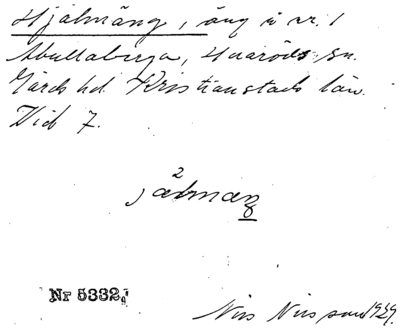 Hjälmäng, äng i nr. 1
Abullaberga, Huaröds sn.
Gärds hd. Kristianstads län.
Vid 7.
Nr 5332,
Nils Nilsson 1929.